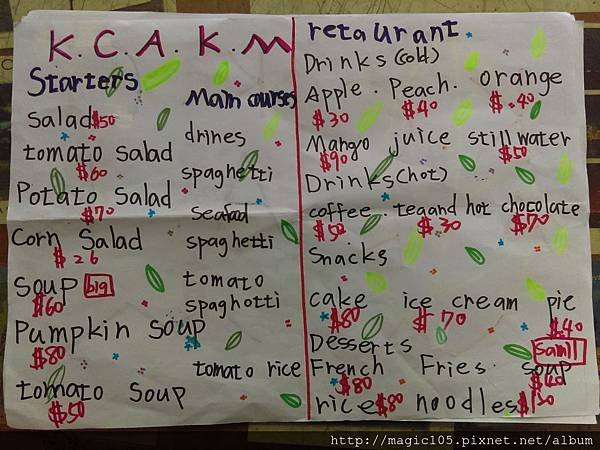 K.C.A.K.M
Starters
Salad $50
tomato salad
$60
Potato Salad
$70
Corn Salad
$26
Soup big
$60
Pumpkin Soup
$80
tomato Soup
$50
Main courses
drines
spaghetti
seafood
spaghetti
tomato
spaghotti
tomato rice
retaurant
Drinks (cold)
Apple. Peach. orange
$30 $40 $.40
Mango juice still water
$90 $50
Drinks (hot)
coffee. tea and hot chocolate
$50 $.30 $70
Snacks
cake ice cream pie
$80 $70 $.40
Desserts samll
French Fries. soup
$80 $40
rice $80 noodles $130
http://magic105.pixnet.net/album